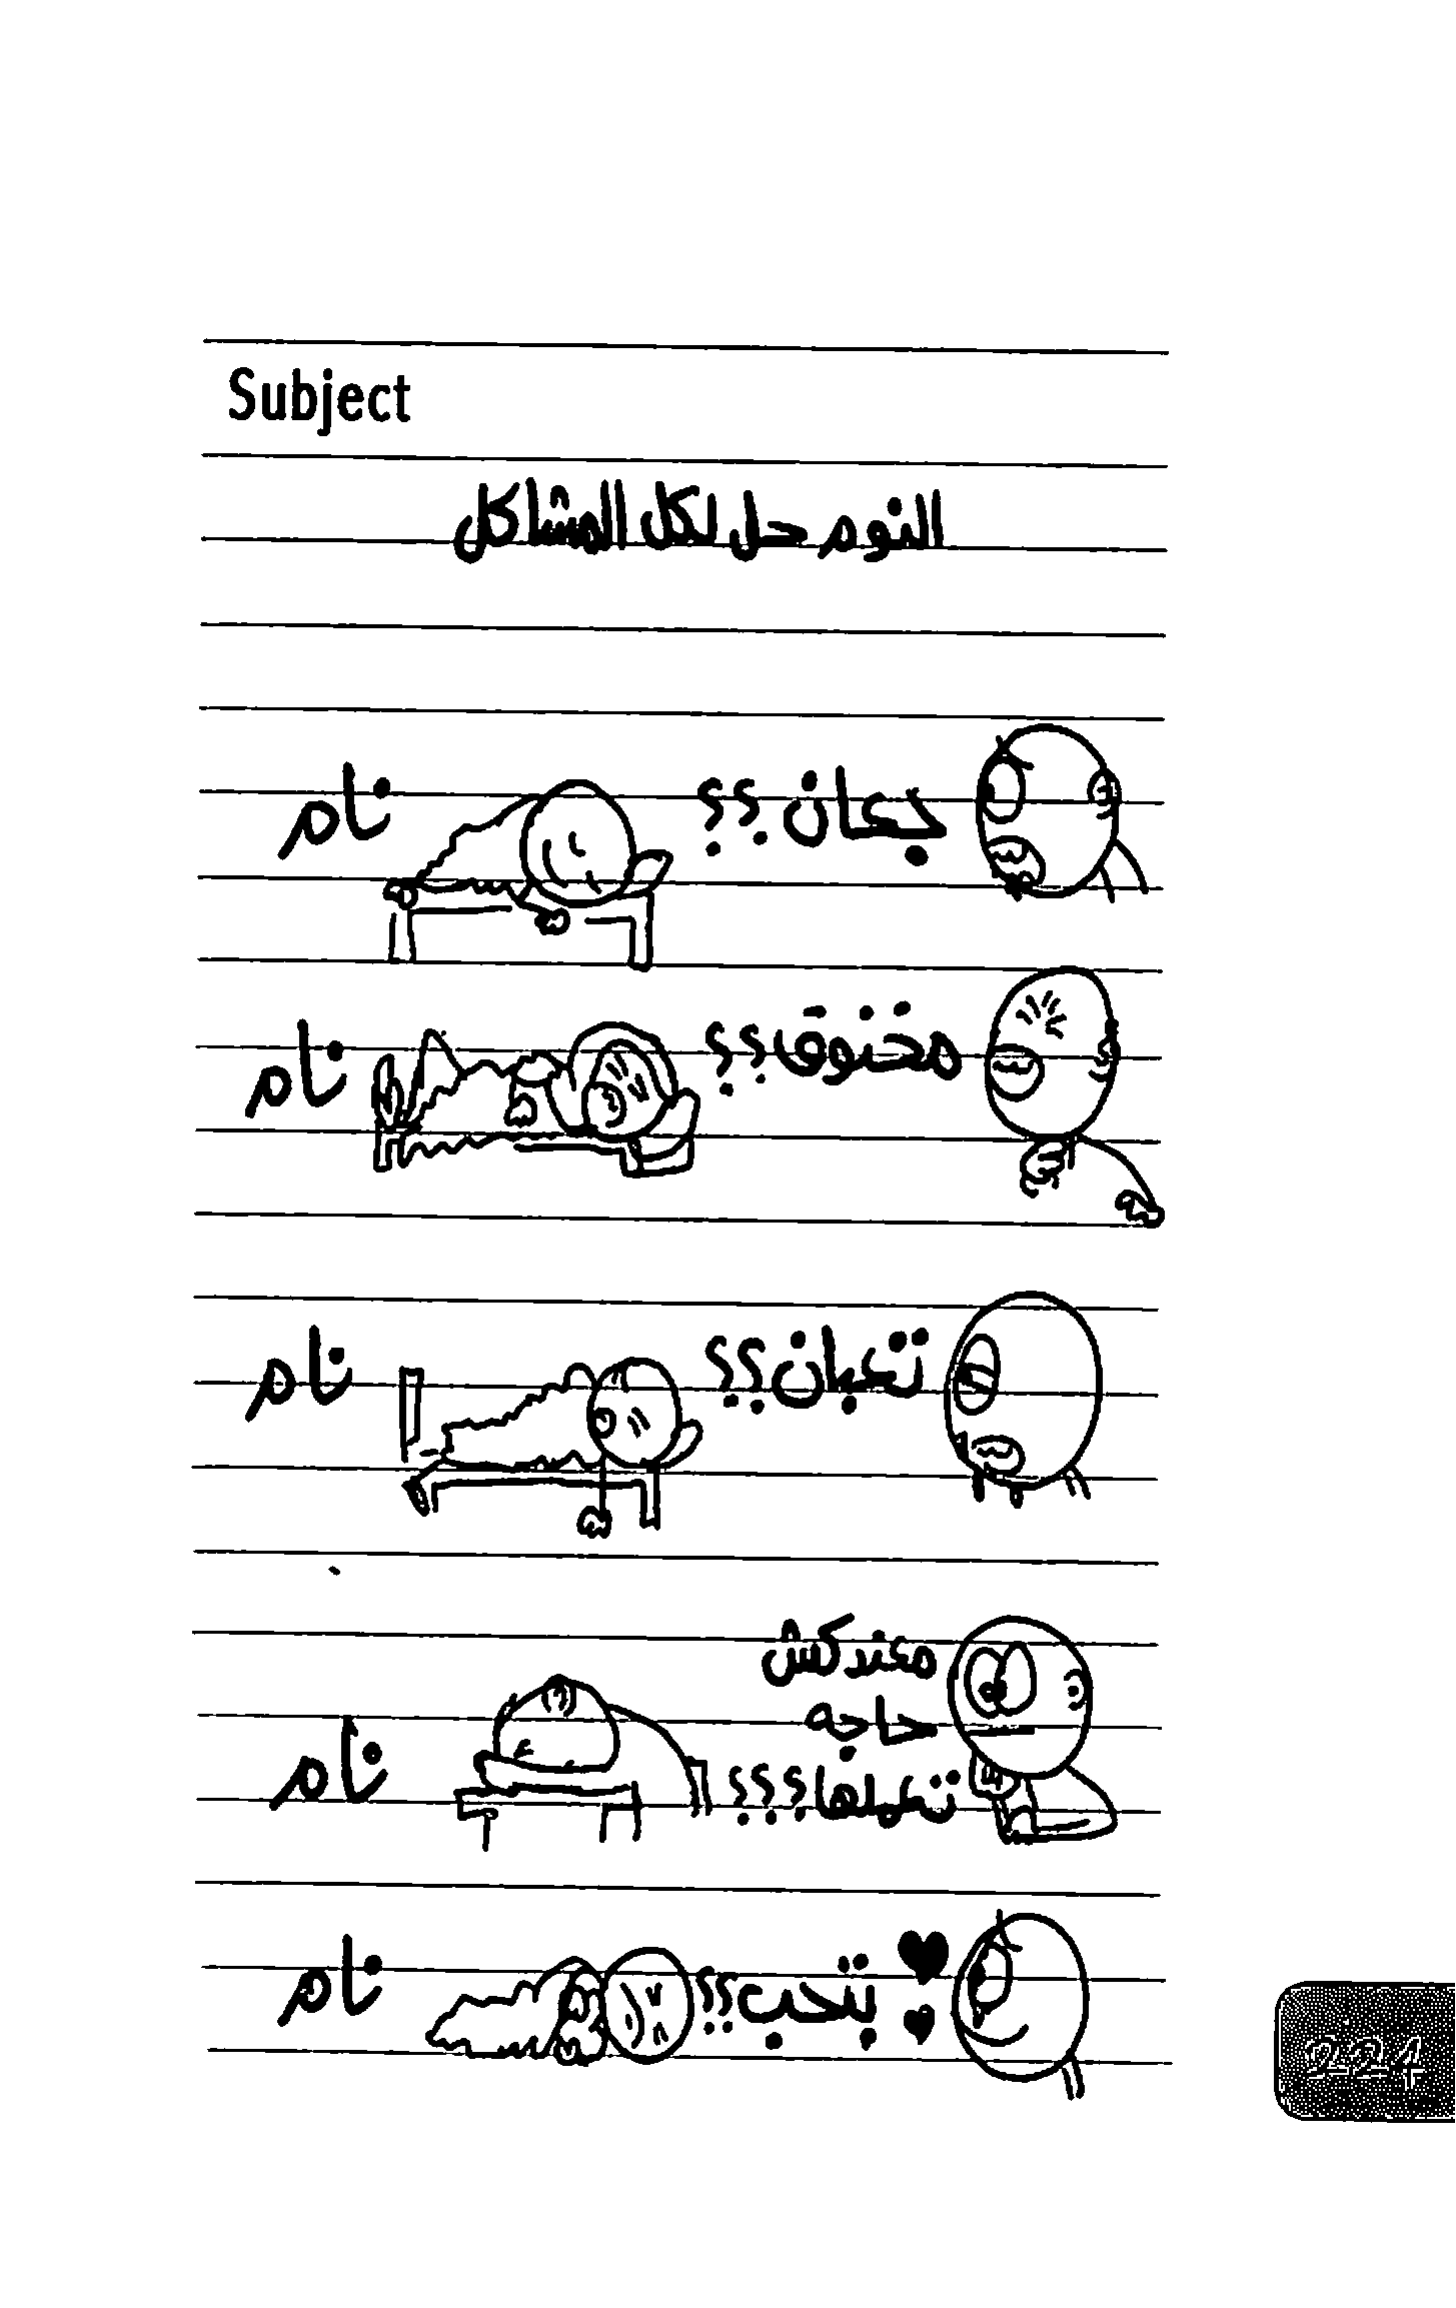 Subject
النوم حل لكل المشاكل
جعان؟؟ نام
مخنوق؟؟ نام
تعبان؟؟ نام
معندكش
حاجه
تعملها؟؟؟ نام
بتحب؟؟ نام
224